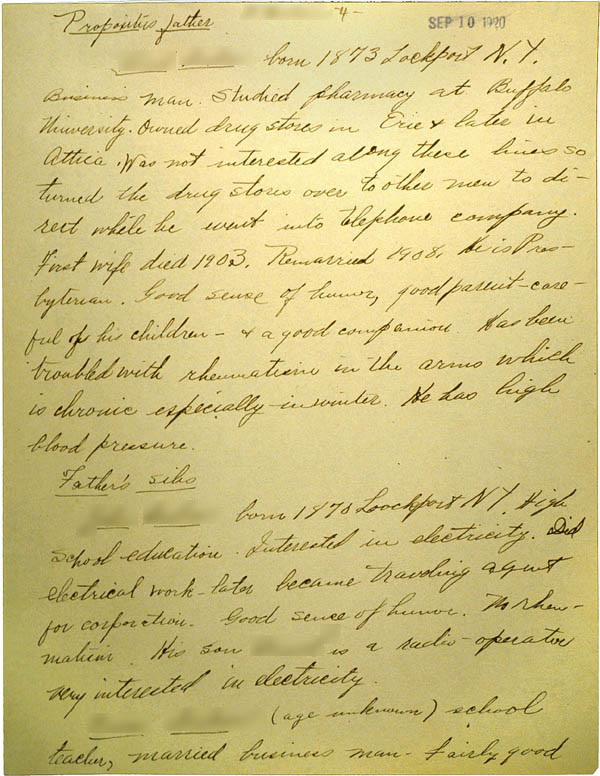 -4-
SEP 10 1920
Propositus father
born 1873 Lockport N.Y.
Business man. Studied pharmacy at Buffalo
University. Owned drug stores in Erie & later in
Attica. Was not interested along these lines so
turned the drug stores over to other men to di-
rect while he went into telephone company.
First wife died 1903. Remarried 1908. He is Pres-
byterian. Good sense of humor, good parent-care-
ful of his children - & a good companion. Has been
troubled with rheumatism in the arms which
is chronic especially in winter. He has high
blood pressure.
Father's sibs
born 1870 Loockport N.Y. High
school education. Interested in electricity. Did
electrical work - later became traveling agent
for corporation. Good sense of humor. No rheu-
matism. His son is a radio-operator
very interested in electricity.
(age unknown) school
teacher, married business man - fairly good